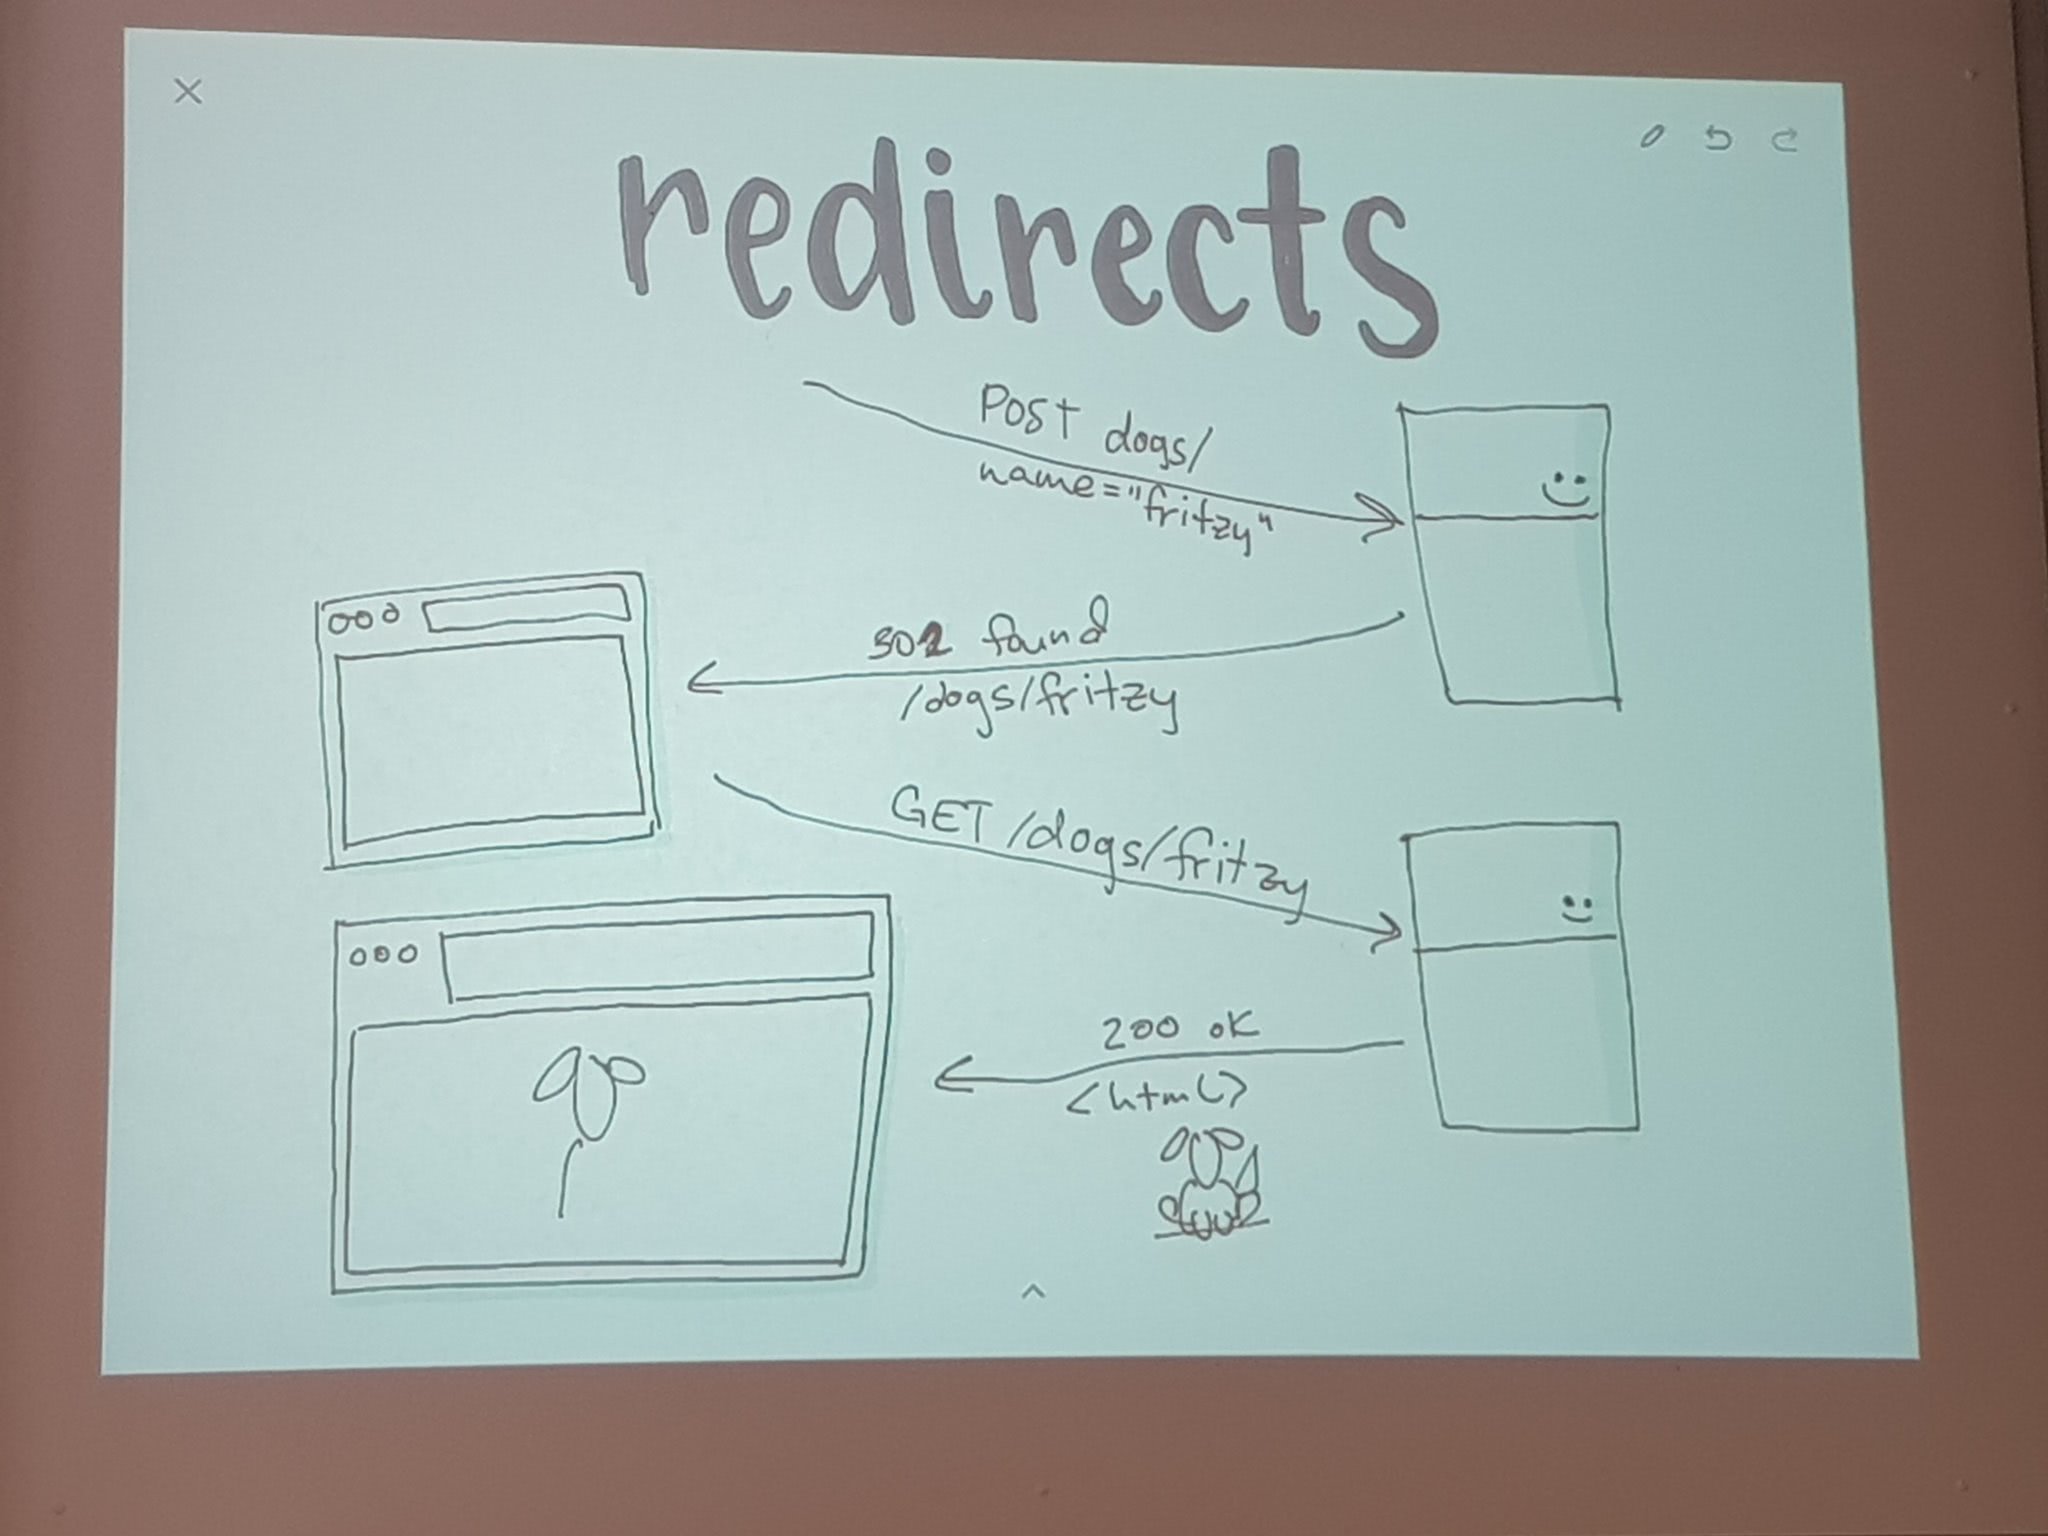 redirects
Post dogs/
name="fritzy"
302 found
/dogs/fritzy
GET /dogs/fritzy
200 ok
<html>